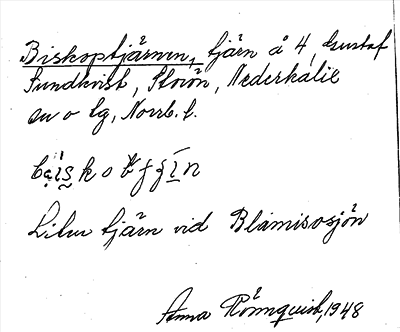 Biskoptjärnen, tjärn å 4, Gustaf
Sundkvist, Storön, Nederkalix
sn o lg, Norrb. l.
Liten tjärn vid Blåmisosjön
Anna Rönnquist, 1948